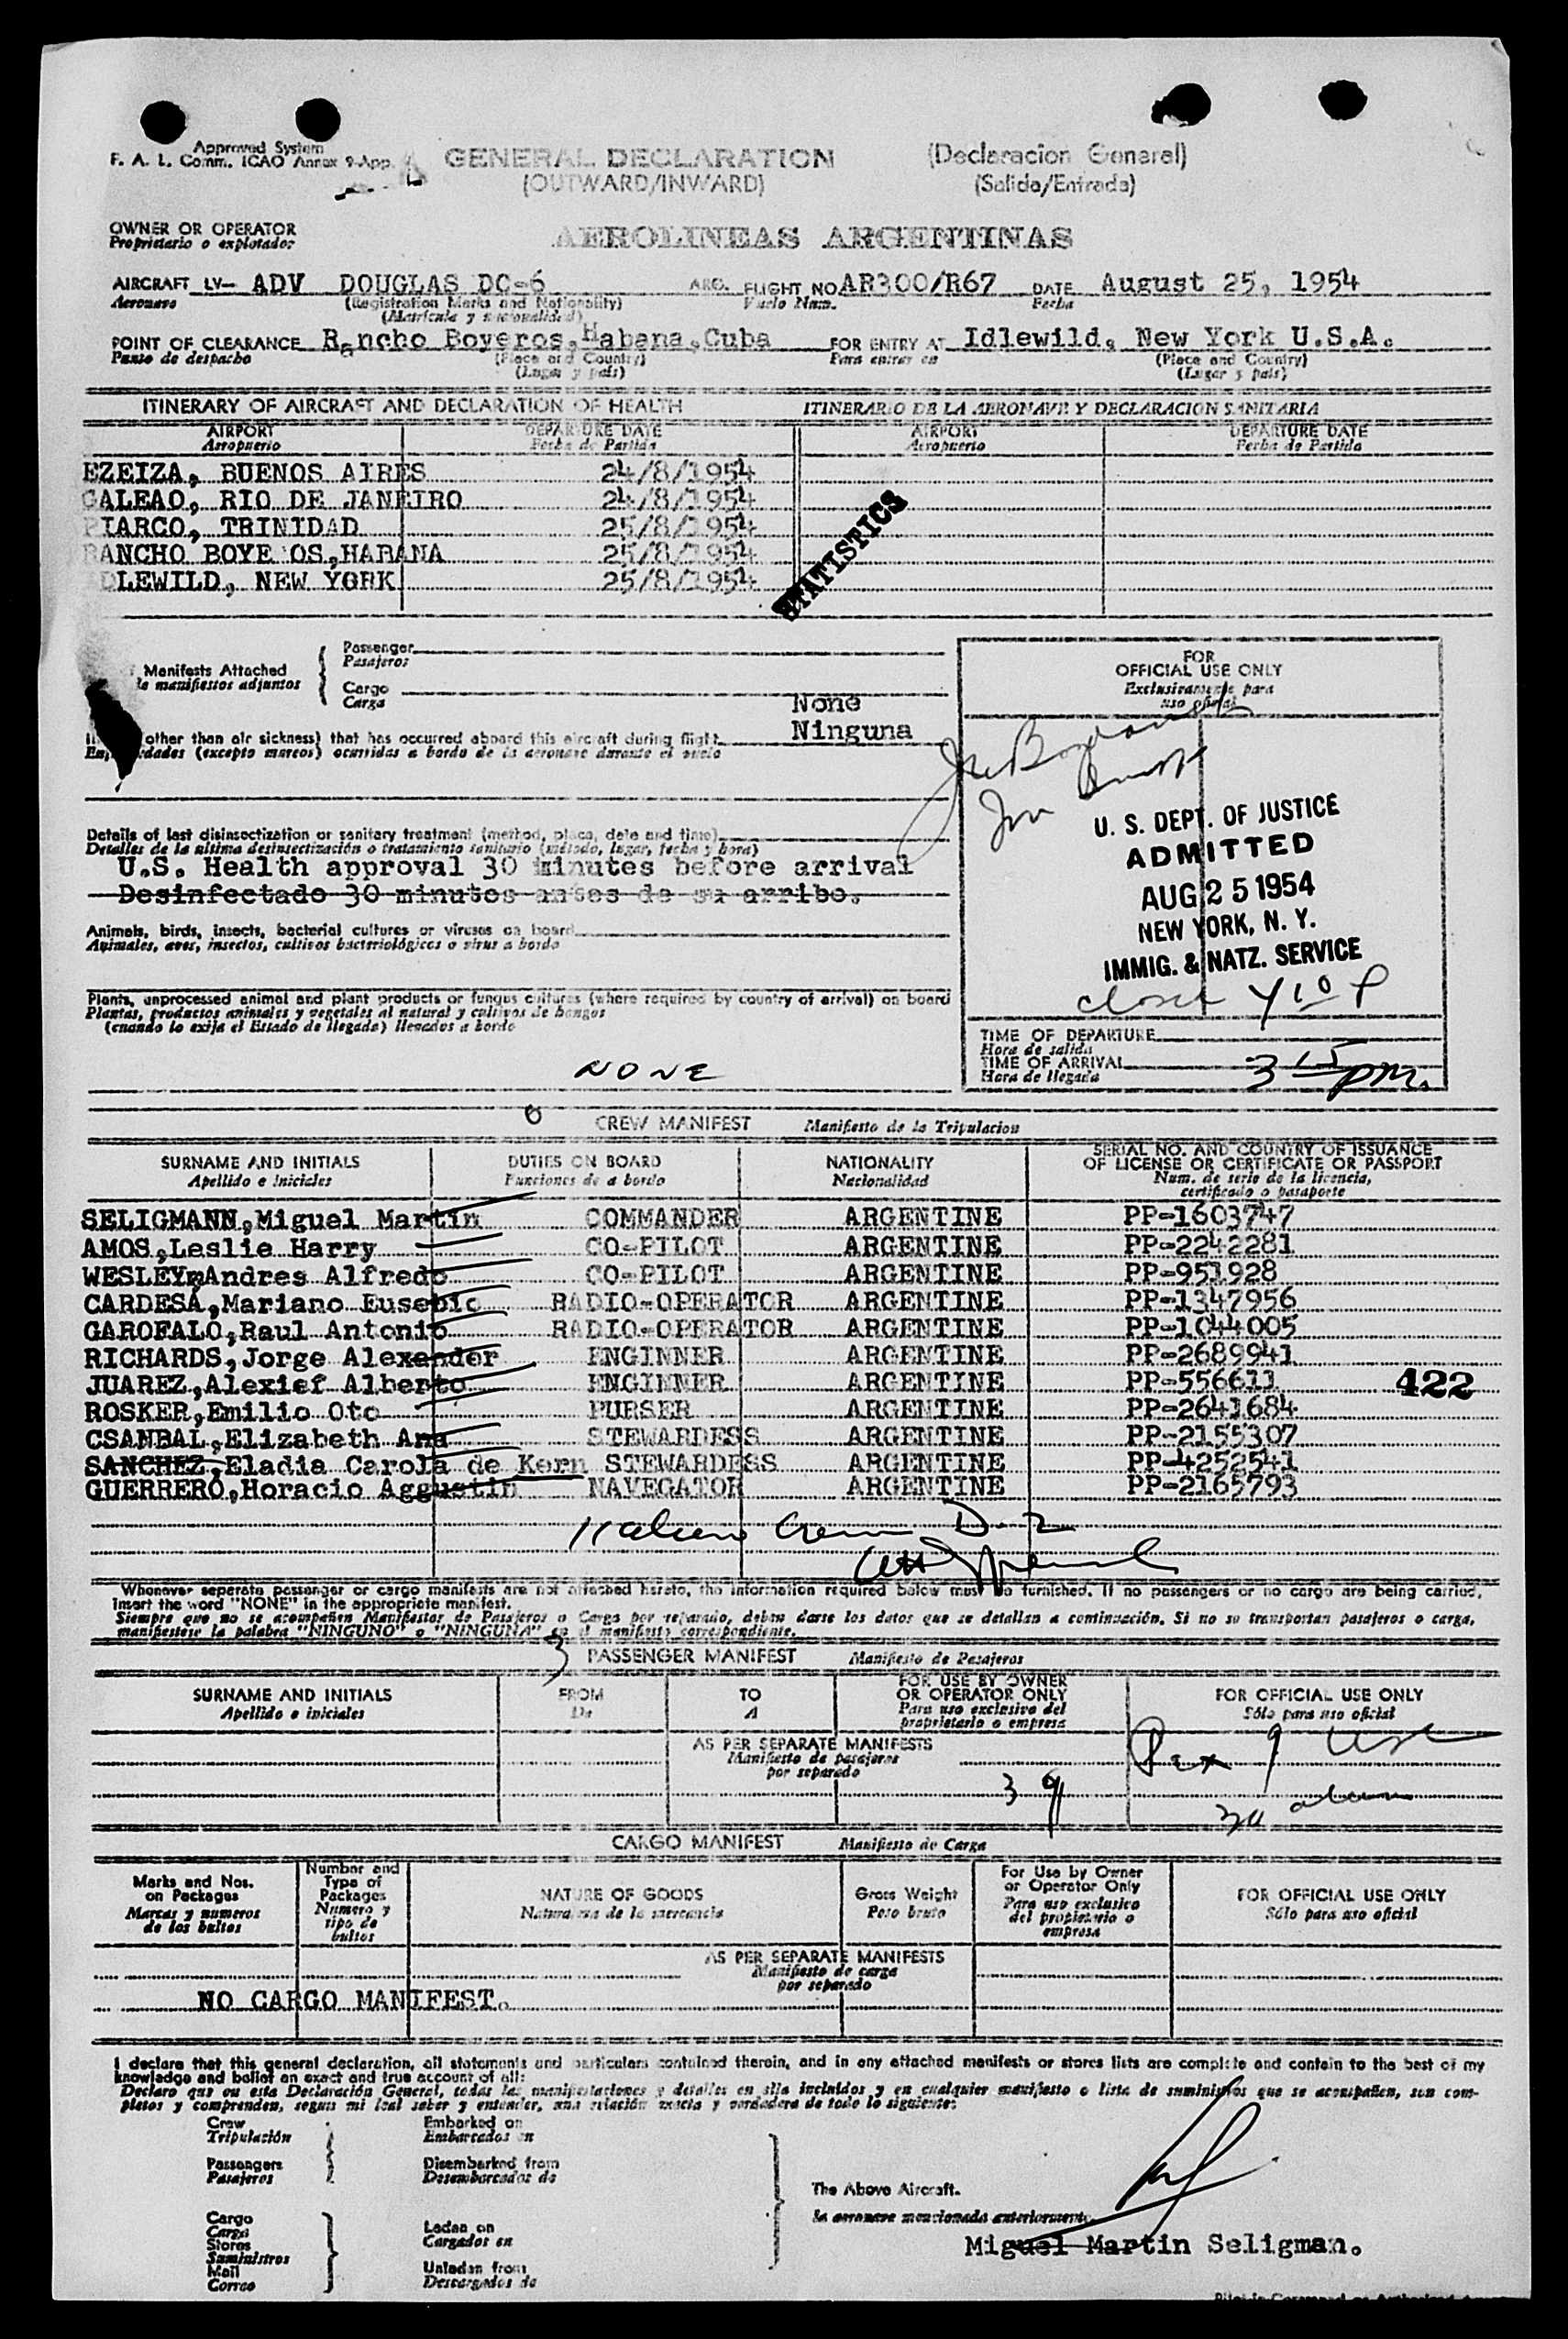 Approved System
F. A. L. Comm. ICAO Annex 9-App.
GENERAL DECLARATION (Declaracion General)
(OUTWARD/INWARD) (Salida/Entrada)
OWNER OR OPERATOR
Propietario o explotador
AEROLINEAS ARGENTINAS
AIRCRAFT LV- ADV DOUGLAS DC-6 ARG. FLIGHT NO AR300/R67 DATE August 25, 1954
Aeronave (Registration Marks and Nationality) Vuelo Num. Fecha
(Matricula y nacionalidad)
POINT OF CLEARANCE Rancho Boyeros, Habana, Cuba FOR ENTRY AT Idlewild, New York U.S.A.
Punto de despacho (Place and Country) Para entrar en (Place and Country)
(Lugar y pais) (Lugar y pais)
ITINERARY OF AIRCRAFT AND DECLARATION OF HEALTH ITINERARIO DE LA AERONAVE Y DECLARACION SANITARIA
AIRPORT DEPARTURE DATE AIRPORT DEPARTURE DATE
Aeropuerto Fecha de Partida Aeropuerto Fecha de Partida
EZEIZA, BUENOS AIRES 24/8/1954
GALEAO, RIO DE JANEIRO 24/8/1954
PIARCO, TRINIDAD 25/8/1954
RANCHO BOYE OS, HABANA 25/8/1954
DLEWILD, NEW YORK 25/8/1954
STATISTICS
Manifests Attached
manifiestos adjuntos
Passenger
Pasajeros
Cargo
Carga
None
Ninguna
(other than air sickness) that has occurred aboard this aircraft during flight
(excepto mareos) ocurridas a bordo de la aeronave durante el vuelo
Details of last disinsectization or sanitary treatment (method, place, date and time)
Detalles de la ultima desinsectización o tratamiento sanitario (método, lugar, fecha y hora)
U.S. Health approval 30 minutes before arrival
Desinfectado 30 minutos antes de su arribo.
Animals, birds, insects, bacterial cultures or viruses on board
Animales, aves, insectos, cultivos bacteriológicos o virus a bordo
Plants, unprocessed animal and plant products or fungus cultures (where required by country of arrival) on board
Plantas, productos animales y vegetales al natural y cultivos de hongos
(cuando lo exija el Estado de llegada) llevados a bordo
NONE
FOR
OFFICIAL USE ONLY
Exclusivamente para
uso oficial
U. S. DEPT. OF JUSTICE
ADMITTED
AUG 25 1954
NEW YORK, N. Y.
IMMIG. & NATZ. SERVICE
TIME OF DEPARTURE
Hora de salida
TIME OF ARRIVAL 3 15 pm.
Hora de llegada
CREW MANIFEST Manifiesto de la Tripulacion
SURNAME AND INITIALS DUTIES ON BOARD NATIONALITY SERIAL NO. AND COUNTRY OF ISSUANCE
Apellido e Iniciales Funciones de a bordo Nacionalidad OF LICENSE OR CERTIFICATE OR PASSPORT
Num. de serie de la licencia,
certificado o pasaporte
SELIGMANN, Miguel Martin COMMANDER ARGENTINE PP-1603747
AMOS, Leslie Harry CO-PILOT ARGENTINE PP-2242281
WESLEY, Andres Alfredo CO-PILOT ARGENTINE PP-951928
CARDESA, Mariano Eusebio RADIO-OPERATOR ARGENTINE PP-1347956
GAROFALO, Raul Antonio RADIO-OPERATOR ARGENTINE PP-1044005
RICHARDS, Jorge Alexander ENGINNER ARGENTINE PP-2689941
JUAREZ, Alexief Alberto ENGINNER ARGENTINE PP-556611 422
ROSKER, Emilio Oto PURSER ARGENTINE PP-2641684
CSANBAL, Elizabeth Ana STEWARDESS ARGENTINE PP-2155307
SANCHEZ, Eladia Carola de Kern STEWARDESS ARGENTINE PP-4252541
GUERRERO, Horacio Aggustin NAVEGATOR ARGENTINE PP-2165793
Whenever seperate passenger or cargo manifests are not attached hereto, the information required below must be furnished. If no passengers or no cargo are being carried,
insert the word "NONE" in the appropriate manifest.
Siempre que no se acompañen Manifiestos de Pasajeros o Carga por separado, deben darse los datos que se detallan a continuación. Si no se transportan pasajeros o carga,
manifiestese la palabra "NINGUNO" o "NINGUNA" en el manifiesto correspondiente.
PASSENGER MANIFEST Manifiesto de Pasajeros
SURNAME AND INITIALS FROM TO FOR USE BY OWNER FOR OFFICIAL USE ONLY
Apellido e iniciales De A OR OPERATOR ONLY Sólo para uso oficial
Para uso exclusivo del
propietario o empresa
AS PER SEPARATE MANIFESTS
Manifiesto de pasajeros
por separado
CARGO MANIFEST Manifiesto de Carga
Marks and Nos.
on Packages
Marcas y numeros
de los bultos
Number and
Type of
Packages
Numero y
tipo de
bultos
NATURE OF GOODS
Naturaleza de la mercancia
Gross Weight
Peso bruto
For Use by Owner
or Operator Only
Para uso exclusivo
del propietario o
empresa
FOR OFFICIAL USE ONLY
Sólo para uso oficial
AS PER SEPARATE MANIFESTS
Manifiesto de carga
por separado
NO CARGO MANIFEST.
I declare that this general declaration, all statements and particulars contained therein, and in any attached manifests or stores lists are complete and contain to the best of my
knowledge and belief an exact and true account of all:
Declaro que en esta Declaración General, todas las manifestaciones y detalles en ella incluidos y en cualquier manifiesto o lista de suministros que se acompañen, son com-
pletos y comprenden, segun mi leal saber y entender, una relación exacta y verdadera de todo lo siguiente:
Crew Embarked on
Tripulación Embarcados en
Passengers Disembarked from
Pasajeros Desembarcados de
The Above Aircraft.
la aeronave mencionada anteriormente.
Cargo
Carga
Stores
Suministros
Mail
Correo
Laden on
Cargados en
Unladen from
Descargados de
Miguel Martin Seligman.